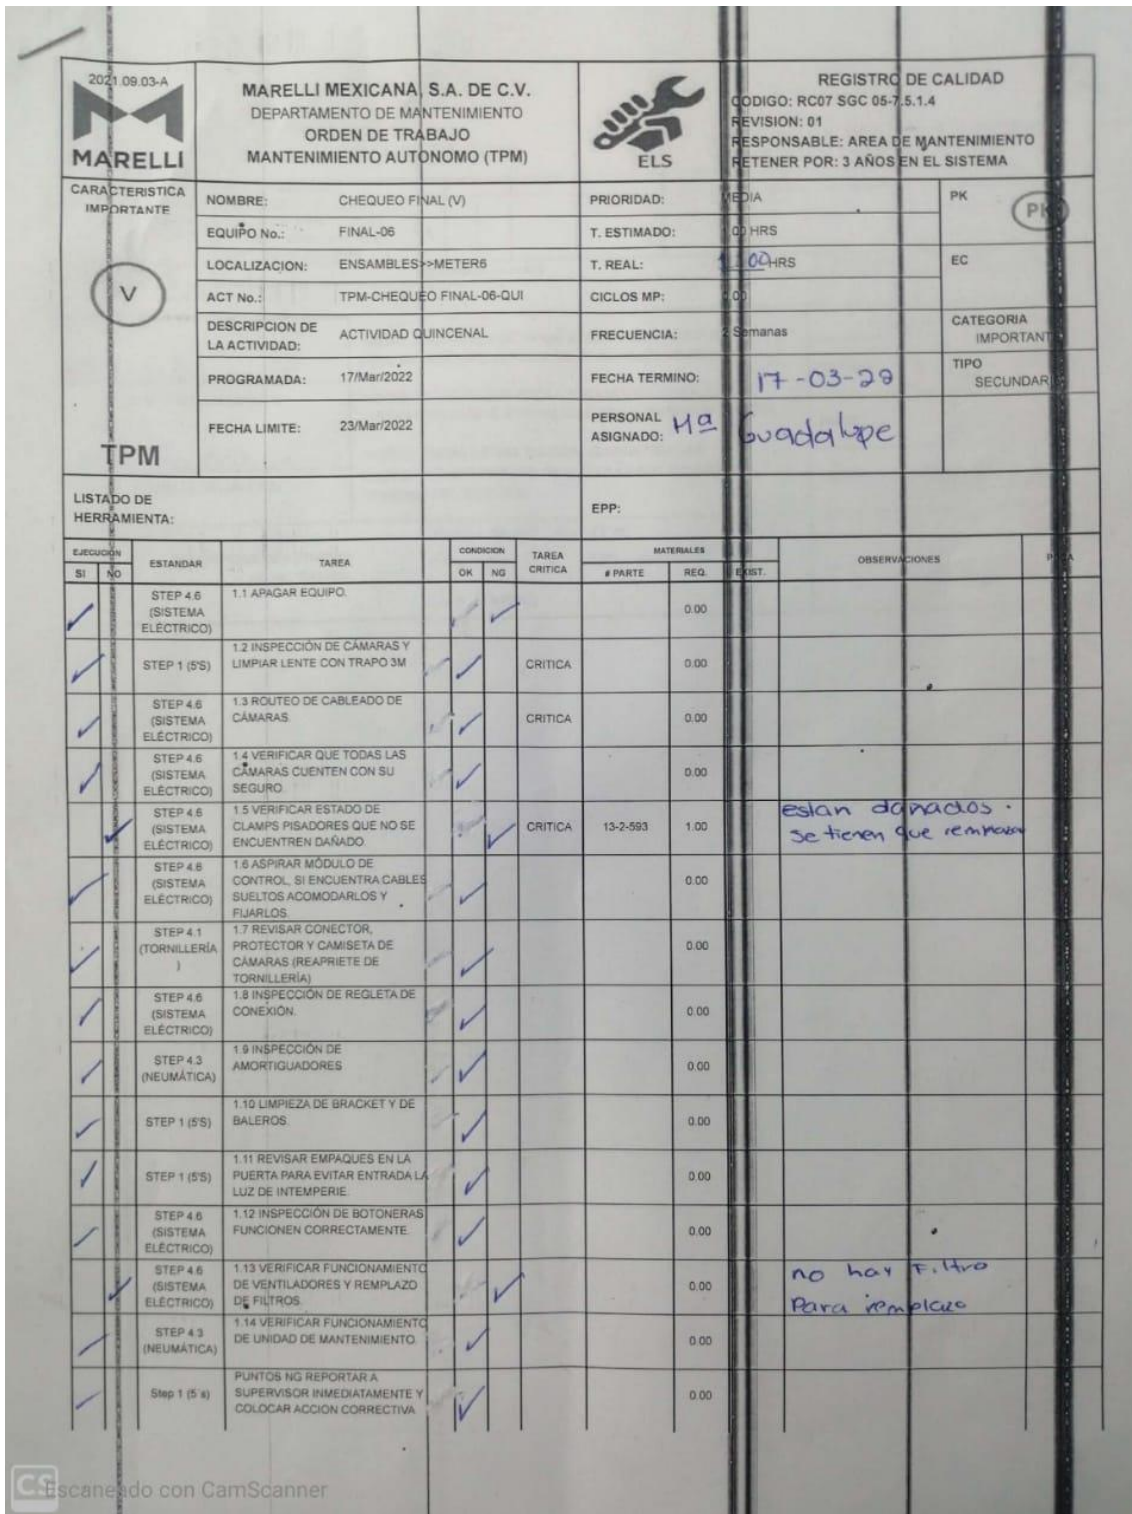 2021.09.03-A
MARELLI
MARELLI MEXICANA, S.A. DE C.V.
DEPARTAMENTO DE MANTENIMIENTO
ORDEN DE TRABAJO
MANTENIMIENTO AUTONOMO (TPM)
ELS
REGISTRO DE CALIDAD
CODIGO: RC07 SGC 05-7.5.1.4
REVISION: 01
RESPONSABLE: AREA DE MANTENIMIENTO
RETENER POR: 3 AÑOS EN EL SISTEMA
CARACTERISTICA
IMPORTANTE
V
TPM
NOMBRE: CHEQUEO FINAL (V)
EQUIPO No.: FINAL-06
LOCALIZACION: ENSAMBLES>>METER6
ACT No.: TPM-CHEQUEO FINAL-06-QUI
DESCRIPCION DE
LA ACTIVIDAD: ACTIVIDAD QUINCENAL
PROGRAMADA: 17/Mar/2022
FECHA LIMITE: 23/Mar/2022
PRIORIDAD: MEDIA
T. ESTIMADO: 00 HRS
T. REAL: 1.00 HRS
CICLOS MP: .00
FRECUENCIA: 2 Semanas
FECHA TERMINO: 17-03-22
PERSONAL
ASIGNADO: Mª Guadalupe
PK PK
EC
CATEGORIA
IMPORTANT
TIPO
SECUNDAR
LISTADO DE
HERRAMIENTA:
EPP:
EJECUCIÓN ESTANDAR TAREA CONDICION TAREA CRITICA MATERIALES OBSERVACIONES
SI NO OK NG # PARTE REQ. EXIST.
STEP 4.6
(SISTEMA
ELÉCTRICO)
1.1 APAGAR EQUIPO.
0.00
STEP 1 (5'S)
1.2 INSPECCIÓN DE CÁMARAS Y
LIMPIAR LENTE CON TRAPO 3M
CRITICA 0.00
STEP 4.6
(SISTEMA
ELÉCTRICO)
1.3 ROUTEO DE CABLEADO DE
CÁMARAS.
CRITICA 0.00
STEP 4.6
(SISTEMA
ELÉCTRICO)
1.4 VERIFICAR QUE TODAS LAS
CÁMARAS CUENTEN CON SU
SEGURO.
0.00
STEP 4.6
(SISTEMA
ELÉCTRICO)
1.5 VERIFICAR ESTADO DE
CLAMPS PISADORES QUE NO SE
ENCUENTREN DAÑADO.
CRITICA 13-2-593 1.00
estan dañados.
se tienen que
STEP 4.6
(SISTEMA
ELÉCTRICO)
1.6 ASPIRAR MÓDULO DE
CONTROL, SI ENCUENTRA CABLES
SUELTOS ACOMODARLOS Y
FIJARLOS.
0.00
STEP 4.1
(TORNILLERÍA
)
1.7 REVISAR CONECTOR,
PROTECTOR Y CAMISETA DE
CÁMARAS (REAPRIETE DE
TORNILLERÍA)
0.00
STEP 4.6
(SISTEMA
ELÉCTRICO)
1.8 INSPECCIÓN DE REGLETA DE
CONEXIÓN.
0.00
STEP 4.3
(NEUMÁTICA)
1.9 INSPECCIÓN DE
AMORTIGUADORES
0.00
STEP 1 (5'S)
1.10 LIMPIEZA DE BRACKET Y DE
BALEROS.
0.00
STEP 1 (5'S)
1.11 REVISAR EMPAQUES EN LA
PUERTA PARA EVITAR ENTRADA LA
LUZ DE INTEMPERIE.
0.00
STEP 4.6
(SISTEMA
ELÉCTRICO)
1.12 INSPECCIÓN DE BOTONERAS
FUNCIONEN CORRECTAMENTE.
0.00
STEP 4.6
(SISTEMA
ELÉCTRICO)
1.13 VERIFICAR FUNCIONAMIENTO
DE VENTILADORES Y REMPLAZO
DE FILTROS.
0.00
no hay Filtro
Para remplazo
STEP 4.3
(NEUMÁTICA)
1.14 VERIFICAR FUNCIONAMIENTO
DE UNIDAD DE MANTENIMIENTO.
0.00
Step 1 (5´s)
PUNTOS NG REPORTAR A
SUPERVISOR INMEDIATAMENTE Y
COLOCAR ACCION CORRECTIVA
0.00
CS Escaneado con CamScanner